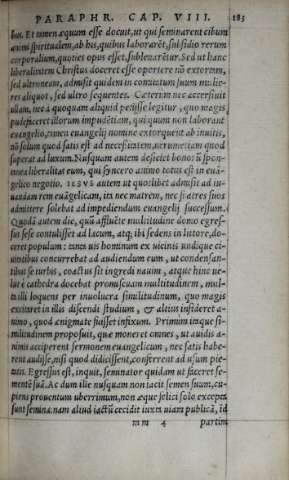 PARAPHR. CAP. VIII. 185
bus. Et tamen æquum esse docuit, ut qui seminarent cibum
animi spiritualem, ab his, quibus laborarēt, subsidio rerum
corporalium, quoties opus esset, subleuarētur. Sed ut hanc
liberalitatem Christus doceret esse oportere nō extortam,
sed ultroneam, admisit quidem in conuictum suum mulie-
res aliquot, sed ultro sequentes. Cæterum nec accersiuit
ullam, nec à quoquam aliquid petisse legitur, quo magis
pudefaceret illorum impudētiam, qui quum non laborant
euangelio, tamen euangelij nomine extorquent ab inuitis,
nō solum quod satis est ad necessitatem, uerumetiam quod
superat ad luxum. Nusquam autem deficiet bonos spon-
tanea liberalitas eum, qui syncero animo totus est in euā-
gelico negotio. IESVS autem ut quoslibet admisit ad iu-
uandam rem euāgelicam, ita nec matrem, nec fratres suos
admittere solebat ad impediendum euangelij successum.
Quodā autem die, quū affluēte multitudine domo egres-
sus sese contulisset ad lacum, atq; ibi sedens in littore, do-
ceret populum: tanta uis hominum ex uicinis undique ci-
uitatibus concurrebat ad audiendum eum, ut condensan-
tibus se turbis, coactus sit ingredi nauim, atque hinc ue-
lut è cathedra docebat promiscuam multitudinem, mul-
ta illi loquens per inuolucra similitudinum, quo magis
excitaret in illis discendi studium, & altius insideret a-
nimo, quod ænigmate fuisset infixum. Primùm itaque si-
militudinem proposuit, quæ moneret omnes, ut auidis a-
nimis acciperent sermonem euangelicum, nec satis habe-
rent audisse, nisi quod didicissent, conferrent ad usum pie-
tatis. Egressus est, inquit, seminator quidam ut faceret se-
mentē suā. Ac dum ille nusquam non iacit semen suum, cu-
piens prouentum uberrimum, non æque felici solo excepta
sunt semina. nam aliud iactū cecidit iuxta uiam publicā, id
mm 4 partim